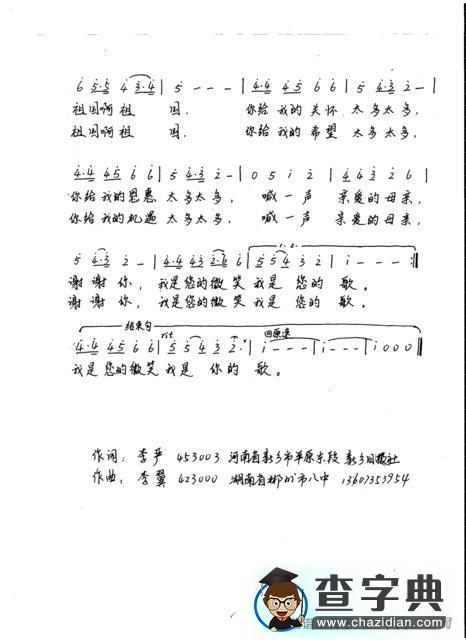 6 5·5 4 3·4 | 5 - - - | 4·4 4 5 6 6 | 5 4·3 2 - |
祖国啊祖 国. 你给我的关怀 太多太多,
祖国啊祖 国. 你给我的希望 太多太多,
4·4 4 5 6 6 | 5 4·3 2 - | 0 5 i 2 | 4 4 3 2 6 |
你给我的恩惠 太多太多, 喊一声 亲爱的母亲,
你给我的机遇 太多太多, 喊一声 亲爱的母亲,
1. 2.
5 4·3 2 - | 4·4 4 3 2·6 6 | 5 5 4 3 2 | i - - - :||
谢谢你, 我是您的微笑 我是 您的 歌。
谢谢你, 我是您的微笑 我是 您的 歌。
结束句 rit 回原速
4·4 4 5 6 6 | 5 5 4 3 2· | i - - - | i - - - | i 0 0 0 ||
我是您的微笑 我是 你的 歌。
作词: 李严 453003 河南省新乡市平原东段 新乡日报社
作曲: 李翼 423000 湖南省郴州市八中 13607353954
查字典
www.chazidian.com